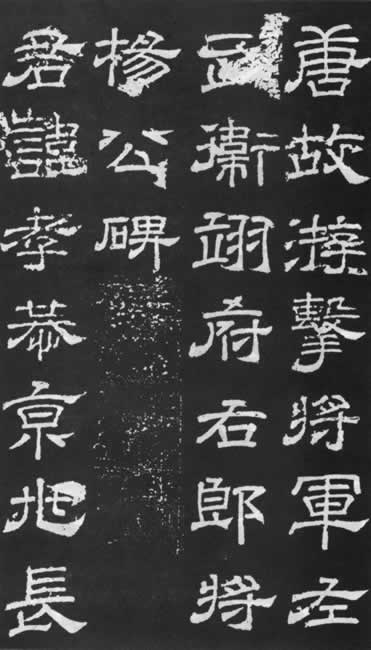 唐故游擊將軍左
武衛翊府右郎將
楊公碑
君諱孝恭京兆長